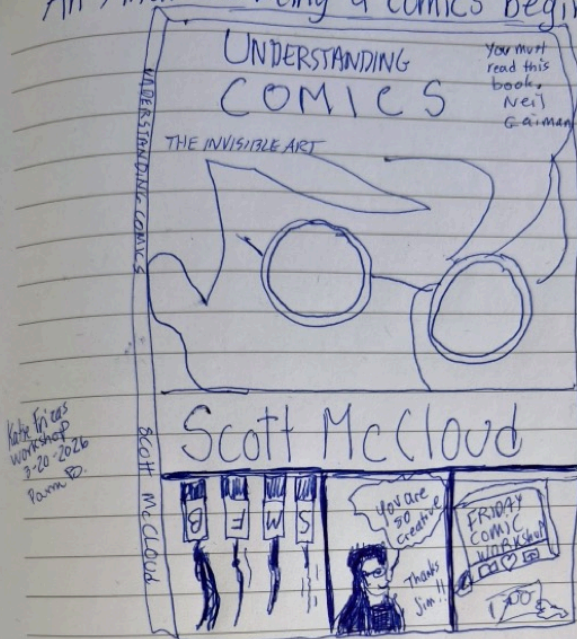 UNDERSTANDING
COMICS
You must
read this
book.
Neil
Gaiman
THE INVISIBLE ART
UNDERSTANDING COMICS
SCOTT McCLOUD
Scott McCloud
Workshop
3-20-2026
B
F
M
S
You are
so
creative
Thanks
Jim!!
FRIDAY
COMIC
WORKSHOP